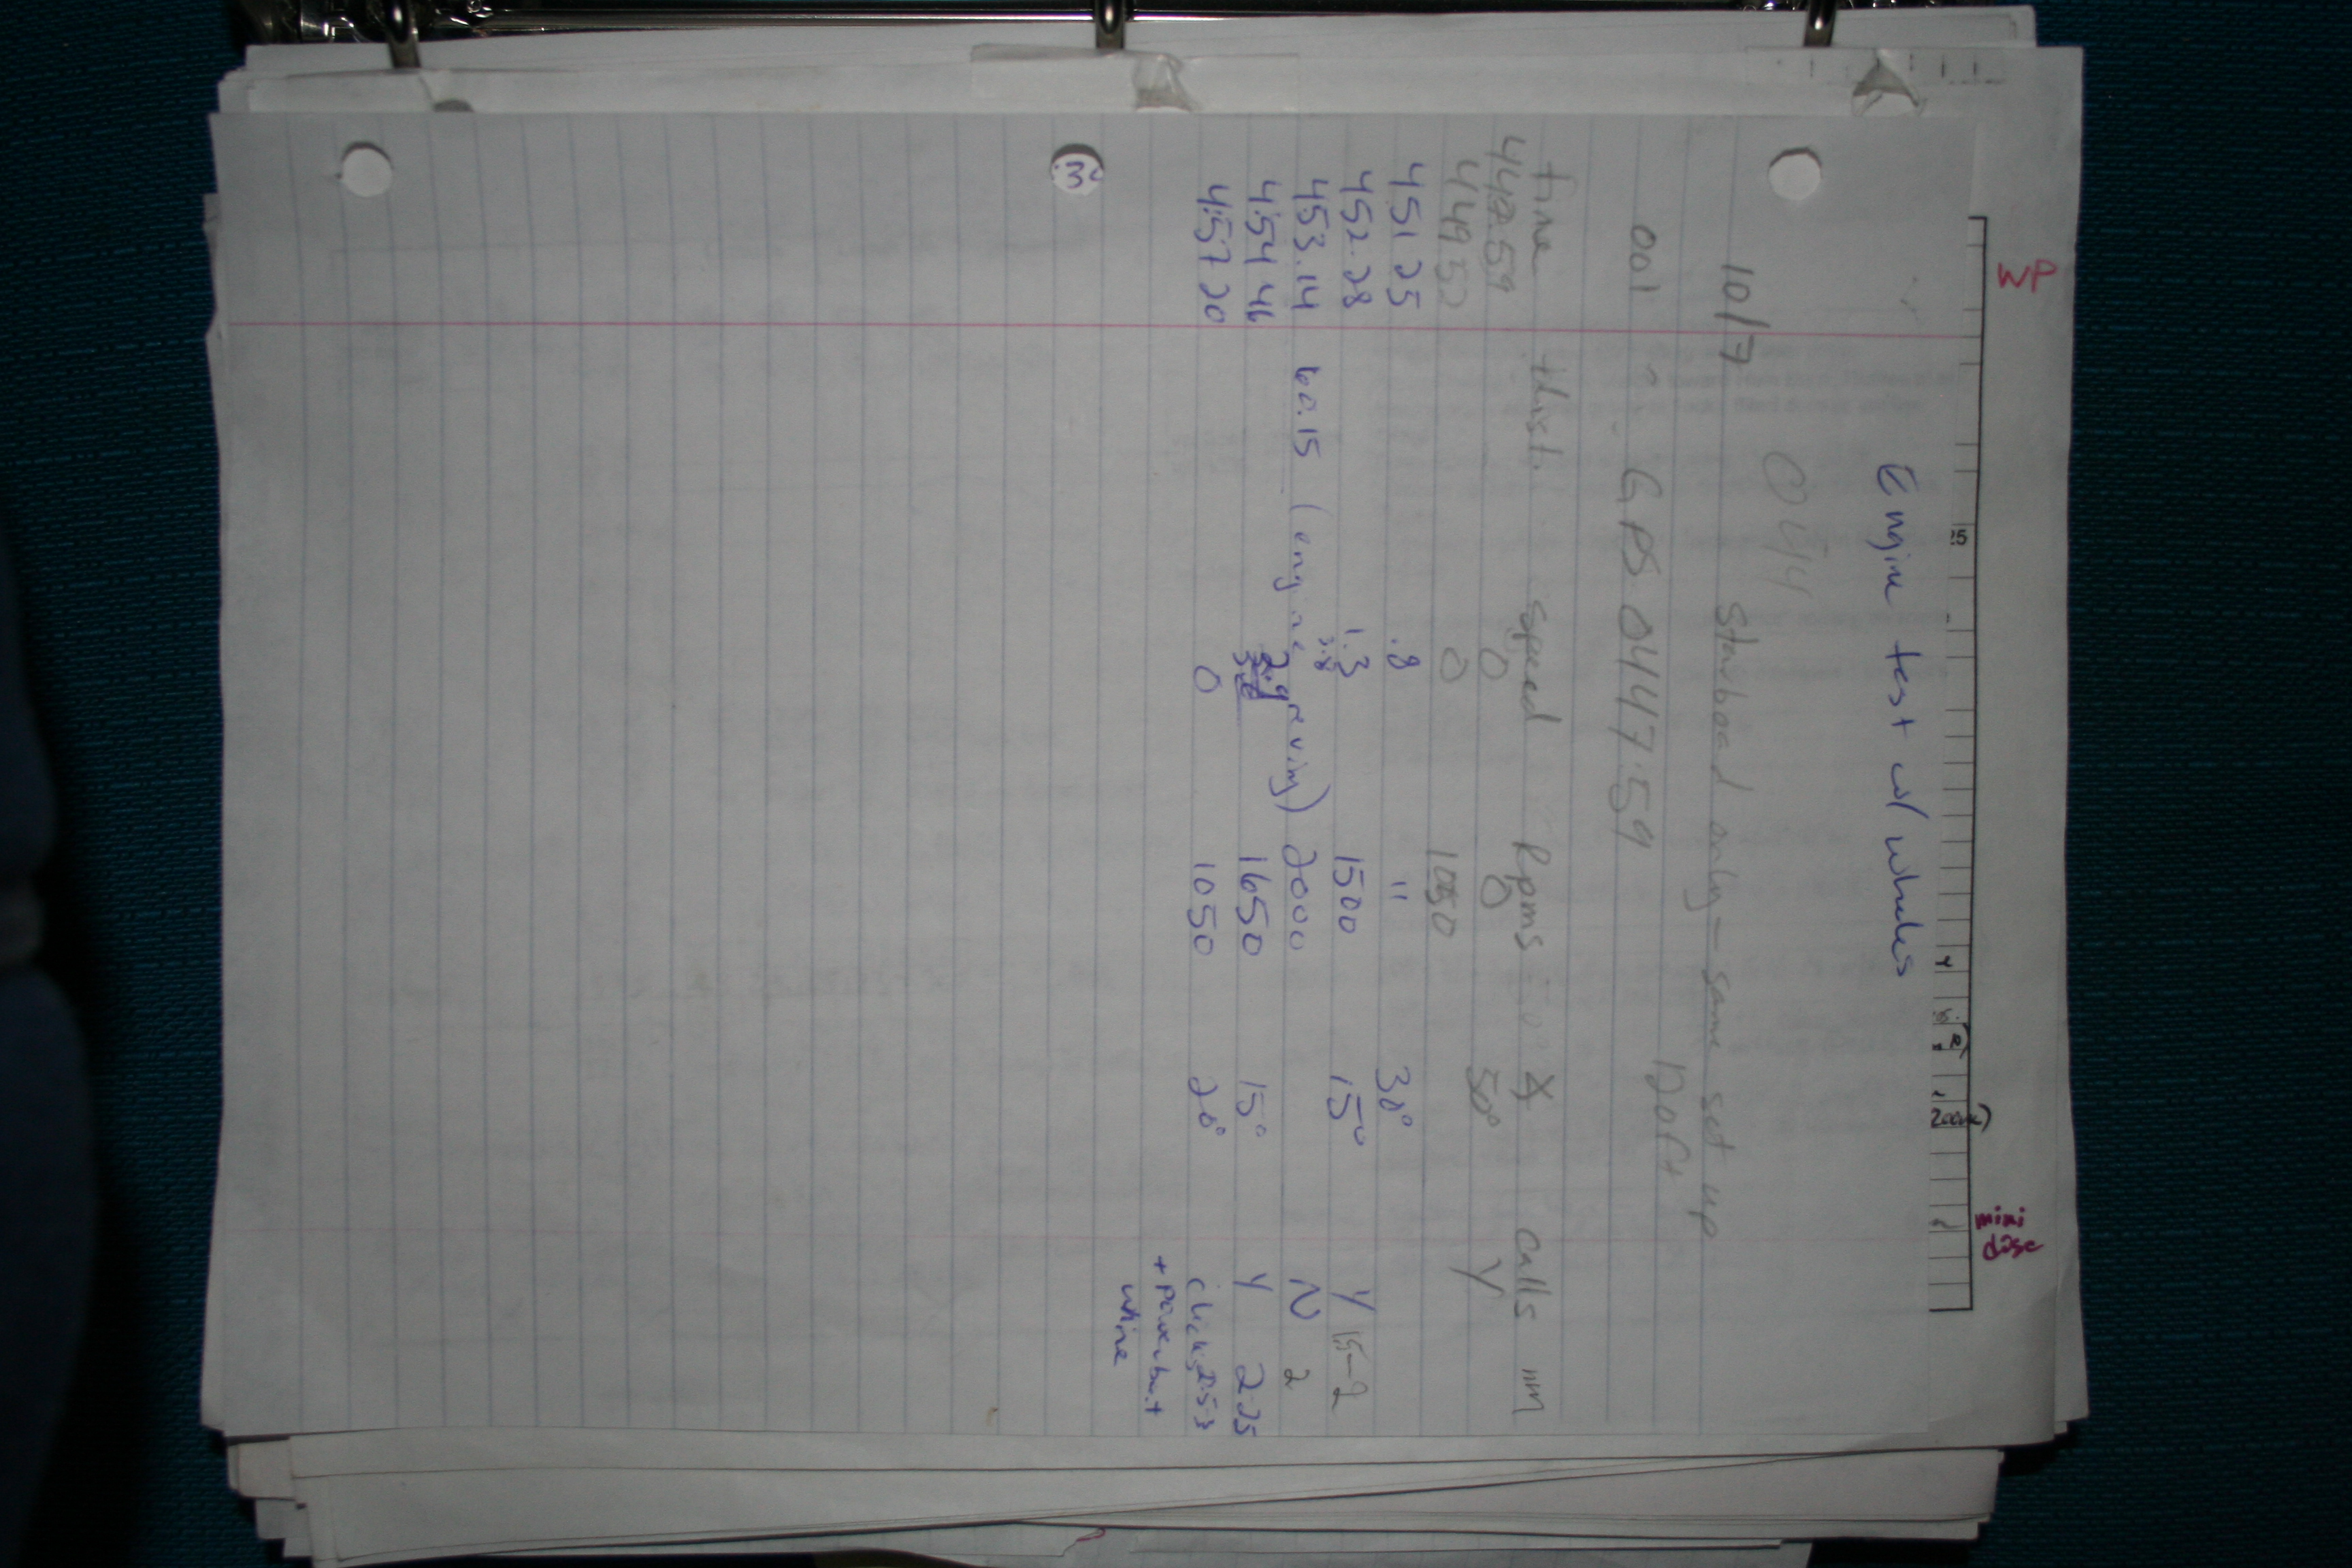 WP
mini
disc
25
Engine test w/ whales
044
10/7 starboard only - same set up
120ft
001 GPS 0447:59
time dist. speed Rpms calls nm
0 0 50° Y
449 52 0 1050
451 25 .8 " 30°
452.28 1.3 1500 15° Y 1.5-2
453.14 60.15 (eng revving) 3.8 2000 N 2
4:54 46 2.9 1650 15° Y 2.25
4:57 20 0 1050 20° clicks 2.5-3
+ power boat
whine